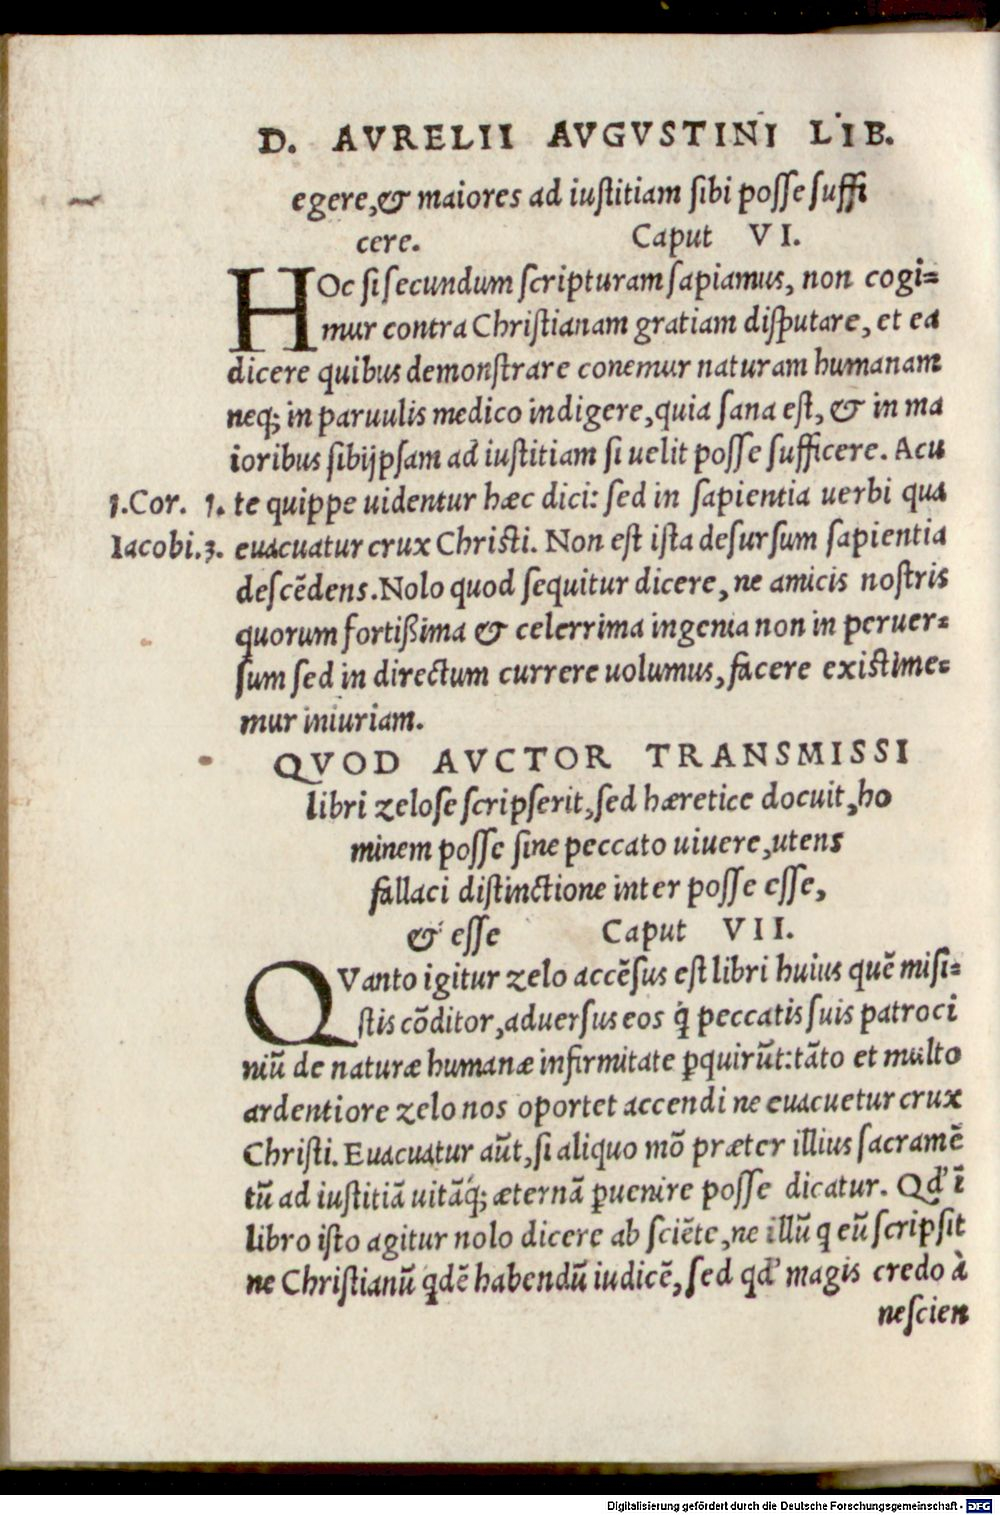 D. AVRELII AVGVSTINI LIB.
egere,& maiores ad iuſtitiam ſibi poſſe ſuffi
cere. Caput VI.
HOc ſi ſecundum ſcripturam ſapiamus, non cogi=
mur contra Chriſtianam gratiam diſputare, et ea
dicere quibus demonſtrare conemur naturam humanam
neq; in paruulis medico indigere, quia ſana eſt, & in ma
ioribus ſibijpſam ad iuſtitiam ſi uelit poſſe ſufficere. Acu
1.Cor. 1. te quippe uidentur hæc dici: ſed in ſapientia uerbi qua
Iacobi.3. euacuatur crux Chriſti. Non eſt iſta deſurſum ſapientia
deſcēdens. Nolo quod ſequitur dicere, ne amicis noſtris
quorum fortißima & celerrima ingenia non in peruer=
ſum ſed in directum currere uolumus, facere exiſtime=
mur iniuriam.
QVOD AVCTOR TRANSMISSI
libri zeloſe ſcripſerit, ſed hæretice docuit, ho
minem poſſe ſine peccato uiuere, utens
fallaci diſtinctione inter poſſe eſſe,
& eſſe Caput VII.
QVanto igitur zelo accēſus eſt libri huius quē miſi=
ſtis cōditor, aduerſus eos q́ peccatis ſuis patroci
niū de naturæ humanæ infirmitate ꝑquirūt: tāto et multo
ardentiore zelo nos oportet accendi ne euacuetur crux
Chriſti. Euacuatur aūt, ſi aliquo mō præter illius ſacramē
tū ad iuſtitiā uitāq́; æternā ꝑuenire poſſe dicatur. Qd' ī
libro iſto agitur nolo dicere ab ſciēte, ne illū q eū ſcripſit
ne Chriſtianū qdē habendū iudicē, ſed qd' magis credo à
neſcien
Digitalisierung gefördert durch die Deutsche Forschungsgemeinschaft - DFG